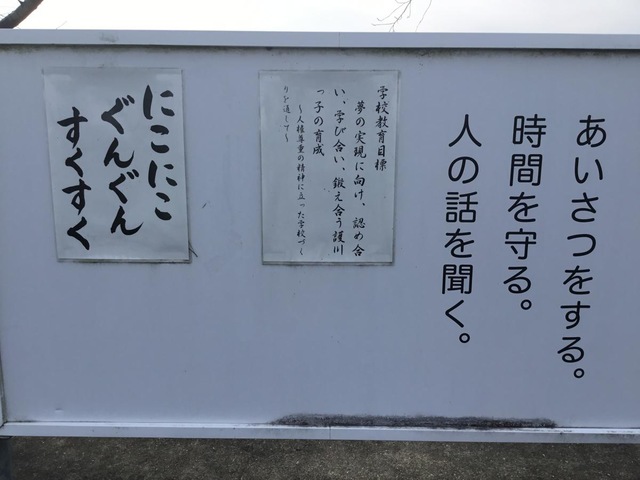 あいさつをする。
時間を守る。
人の話を聞く。
学校教育目標
夢の実現に向け、認め合
い、学び合い、鍛え合う護川
っ子の育成
～人権尊重の精神に立った学校づく
りを通して～
にこにこ
ぐんぐん
すくすく